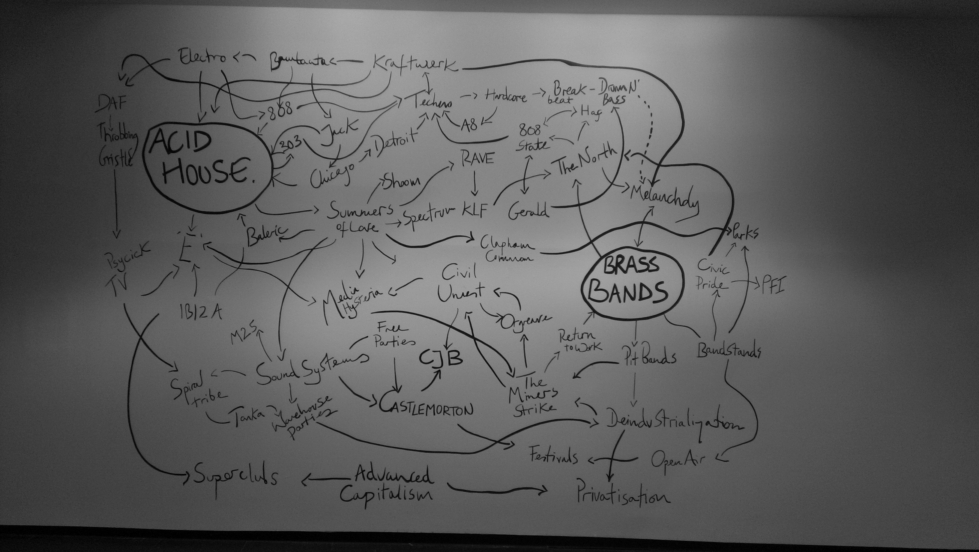 Electro
Bambaataa
Kraftwerk
DAF
808
Techno
Hardcore
Break-
beat
Drum N'
Bass
Throbbing
Gristle
ACID
HOUSE.
303
Jack
Detroit
A8
808
State
Hag
Chicago
RAVE
The North
Shoom
Melancholy
Summers
of Love
Spectrum
KLF
Gerald
Baleric
'E'
Clapham
Common
Parks
Psycick
TV
BRASS
BANDS
Civic
Pride
PFI
Media
Hysteria
Civil
Unrest
IBIZA
Orgreave
M25
Free
Parties
Return
to Work
CJB
Pit Bands
Bandstands
Sound Systems
Spiral
tribe
The
Miners
Strike
Tonka
Warehouse
parties
CASTLEMORTON
Deindustrialization
Festivals
Open Air
Superclubs
Advanced
Capitalism
Privatisation